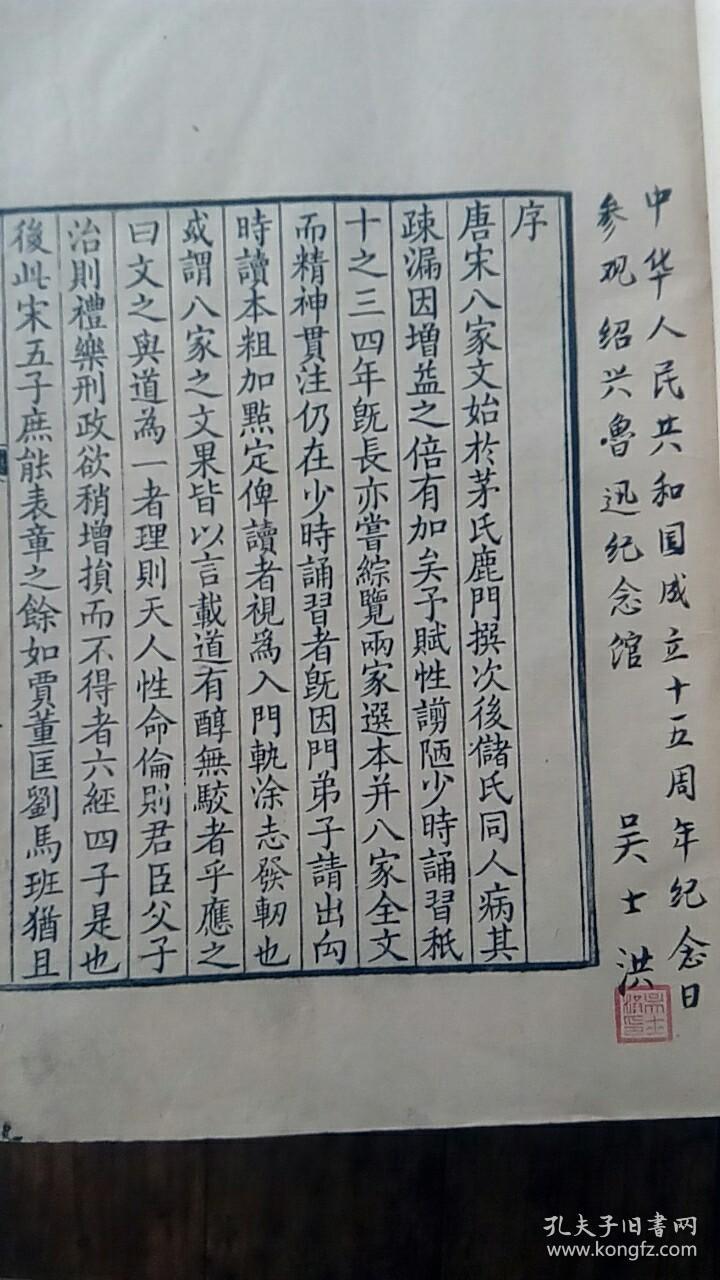 中华人民共和国成立十五周年纪念日
参观绍兴鲁迅纪念馆
吴士洪
序
唐宋八家文始於茅氏鹿門撰次後儲氏同人病其
疎漏因增益之倍有加矣予賦性謭陋少時誦習秖
十之三四年旣長亦嘗綜覽兩家選本并八家全文
而精神貫注仍在少時誦習者旣因門弟子請出向
時讀本粗加點定俾讀者視爲入門軌涂志發軔也
或謂八家之文果皆以言載道有醇無駮者乎應之
曰文之與道為一者理則天人性命倫則君臣父子
治則禮樂刑政欲稍增損而不得者六經四子是也
後此宋五子庶能表章之餘如賈董匡劉馬班猶且
孔夫子旧书网
www.kongfz.com